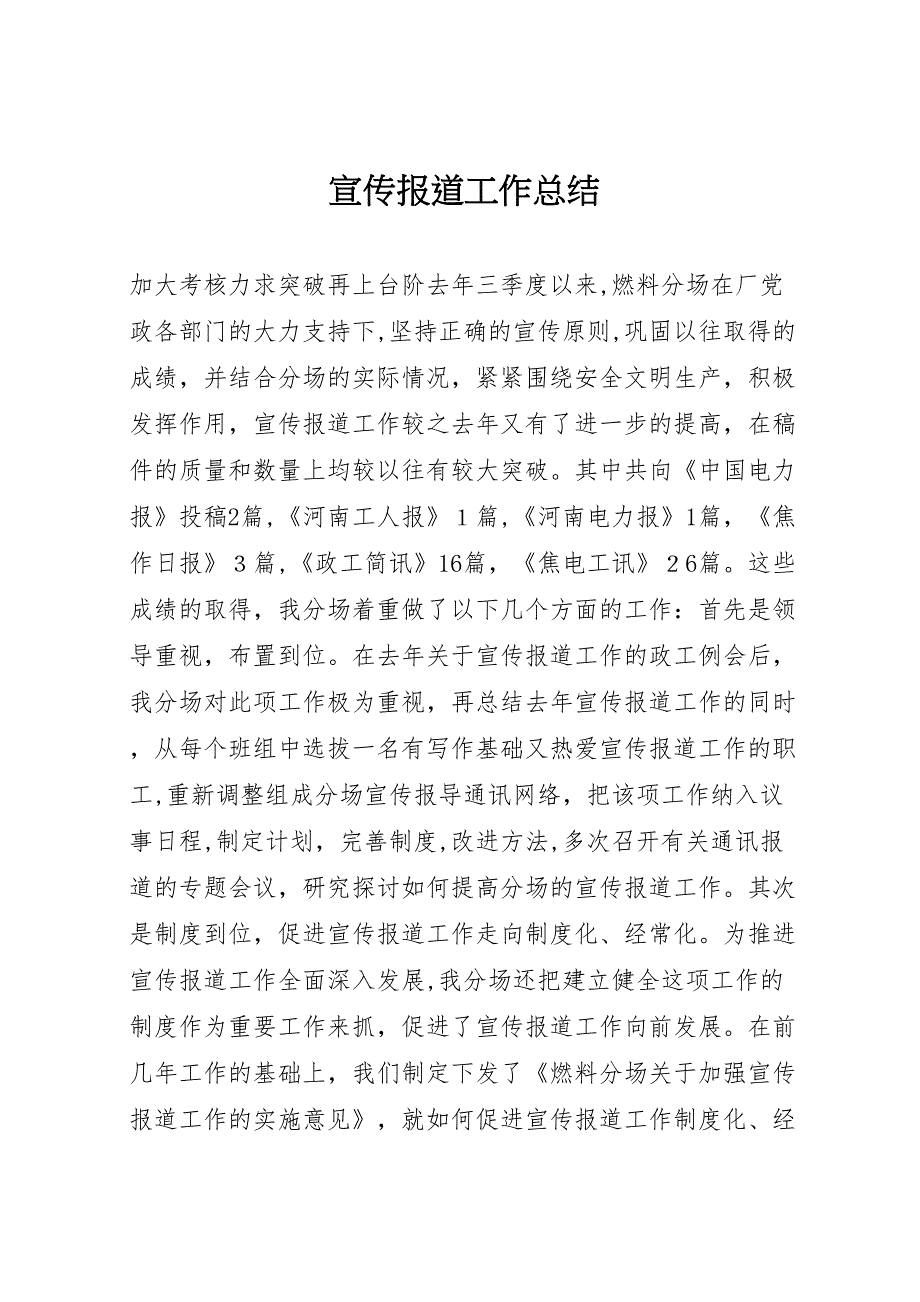 宣传报道工作总结
加大考核力求突破再上台阶去年三季度以来,燃料分场在厂党
政各部门的大力支持下,坚持正确的宣传原则,巩固以往取得的
成绩，并结合分场的实际情况，紧紧围绕安全文明生产，积极
发挥作用，宣传报道工作较之去年又有了进一步的提高，在稿
件的质量和数量上均较以往有较大突破。其中共向《中国电力
报》投稿2篇,《河南工人报》１篇,《河南电力报》1篇，《焦
作日报》３篇,《政工简讯》16篇，《焦电工讯》２6篇。这些
成绩的取得，我分场着重做了以下几个方面的工作：首先是领
导重视，布置到位。在去年关于宣传报道工作的政工例会后，
我分场对此项工作极为重视，再总结去年宣传报道工作的同时
，从每个班组中选拔一名有写作基础又热爱宣传报道工作的职
工,重新调整组成分场宣传报导通讯网络，把该项工作纳入议
事日程,制定计划，完善制度,改进方法,多次召开有关通讯报
道的专题会议，研究探讨如何提高分场的宣传报道工作。其次
是制度到位，促进宣传报道工作走向制度化、经常化。为推进
宣传报道工作全面深入发展,我分场还把建立健全这项工作的
制度作为重要工作来抓，促进了宣传报道工作向前发展。在前
几年工作的基础上，我们制定下发了《燃料分场关于加强宣传
报道工作的实施意见》，就如何促进宣传报道工作制度化、经